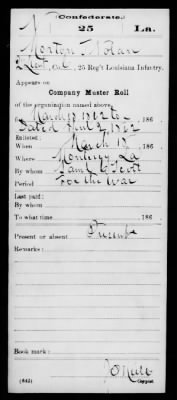 Confederate.
25 La.
Morton T Nolan
Lieut, Co , 25 Reg't Louisiana Infantry.
Appears on
Company Muster Roll
of the organization named above,
for March 18 1862 to , 186 .
Dated April 2, 1862
Enlisted:
When March 18 , 186 .
Where Monroe, La
By whom Saml L Scott
Period For the War
Last paid:
By whom
To what time , 186 .
Present or absent Present
Remarks:
Book mark:
(642) Copyist.